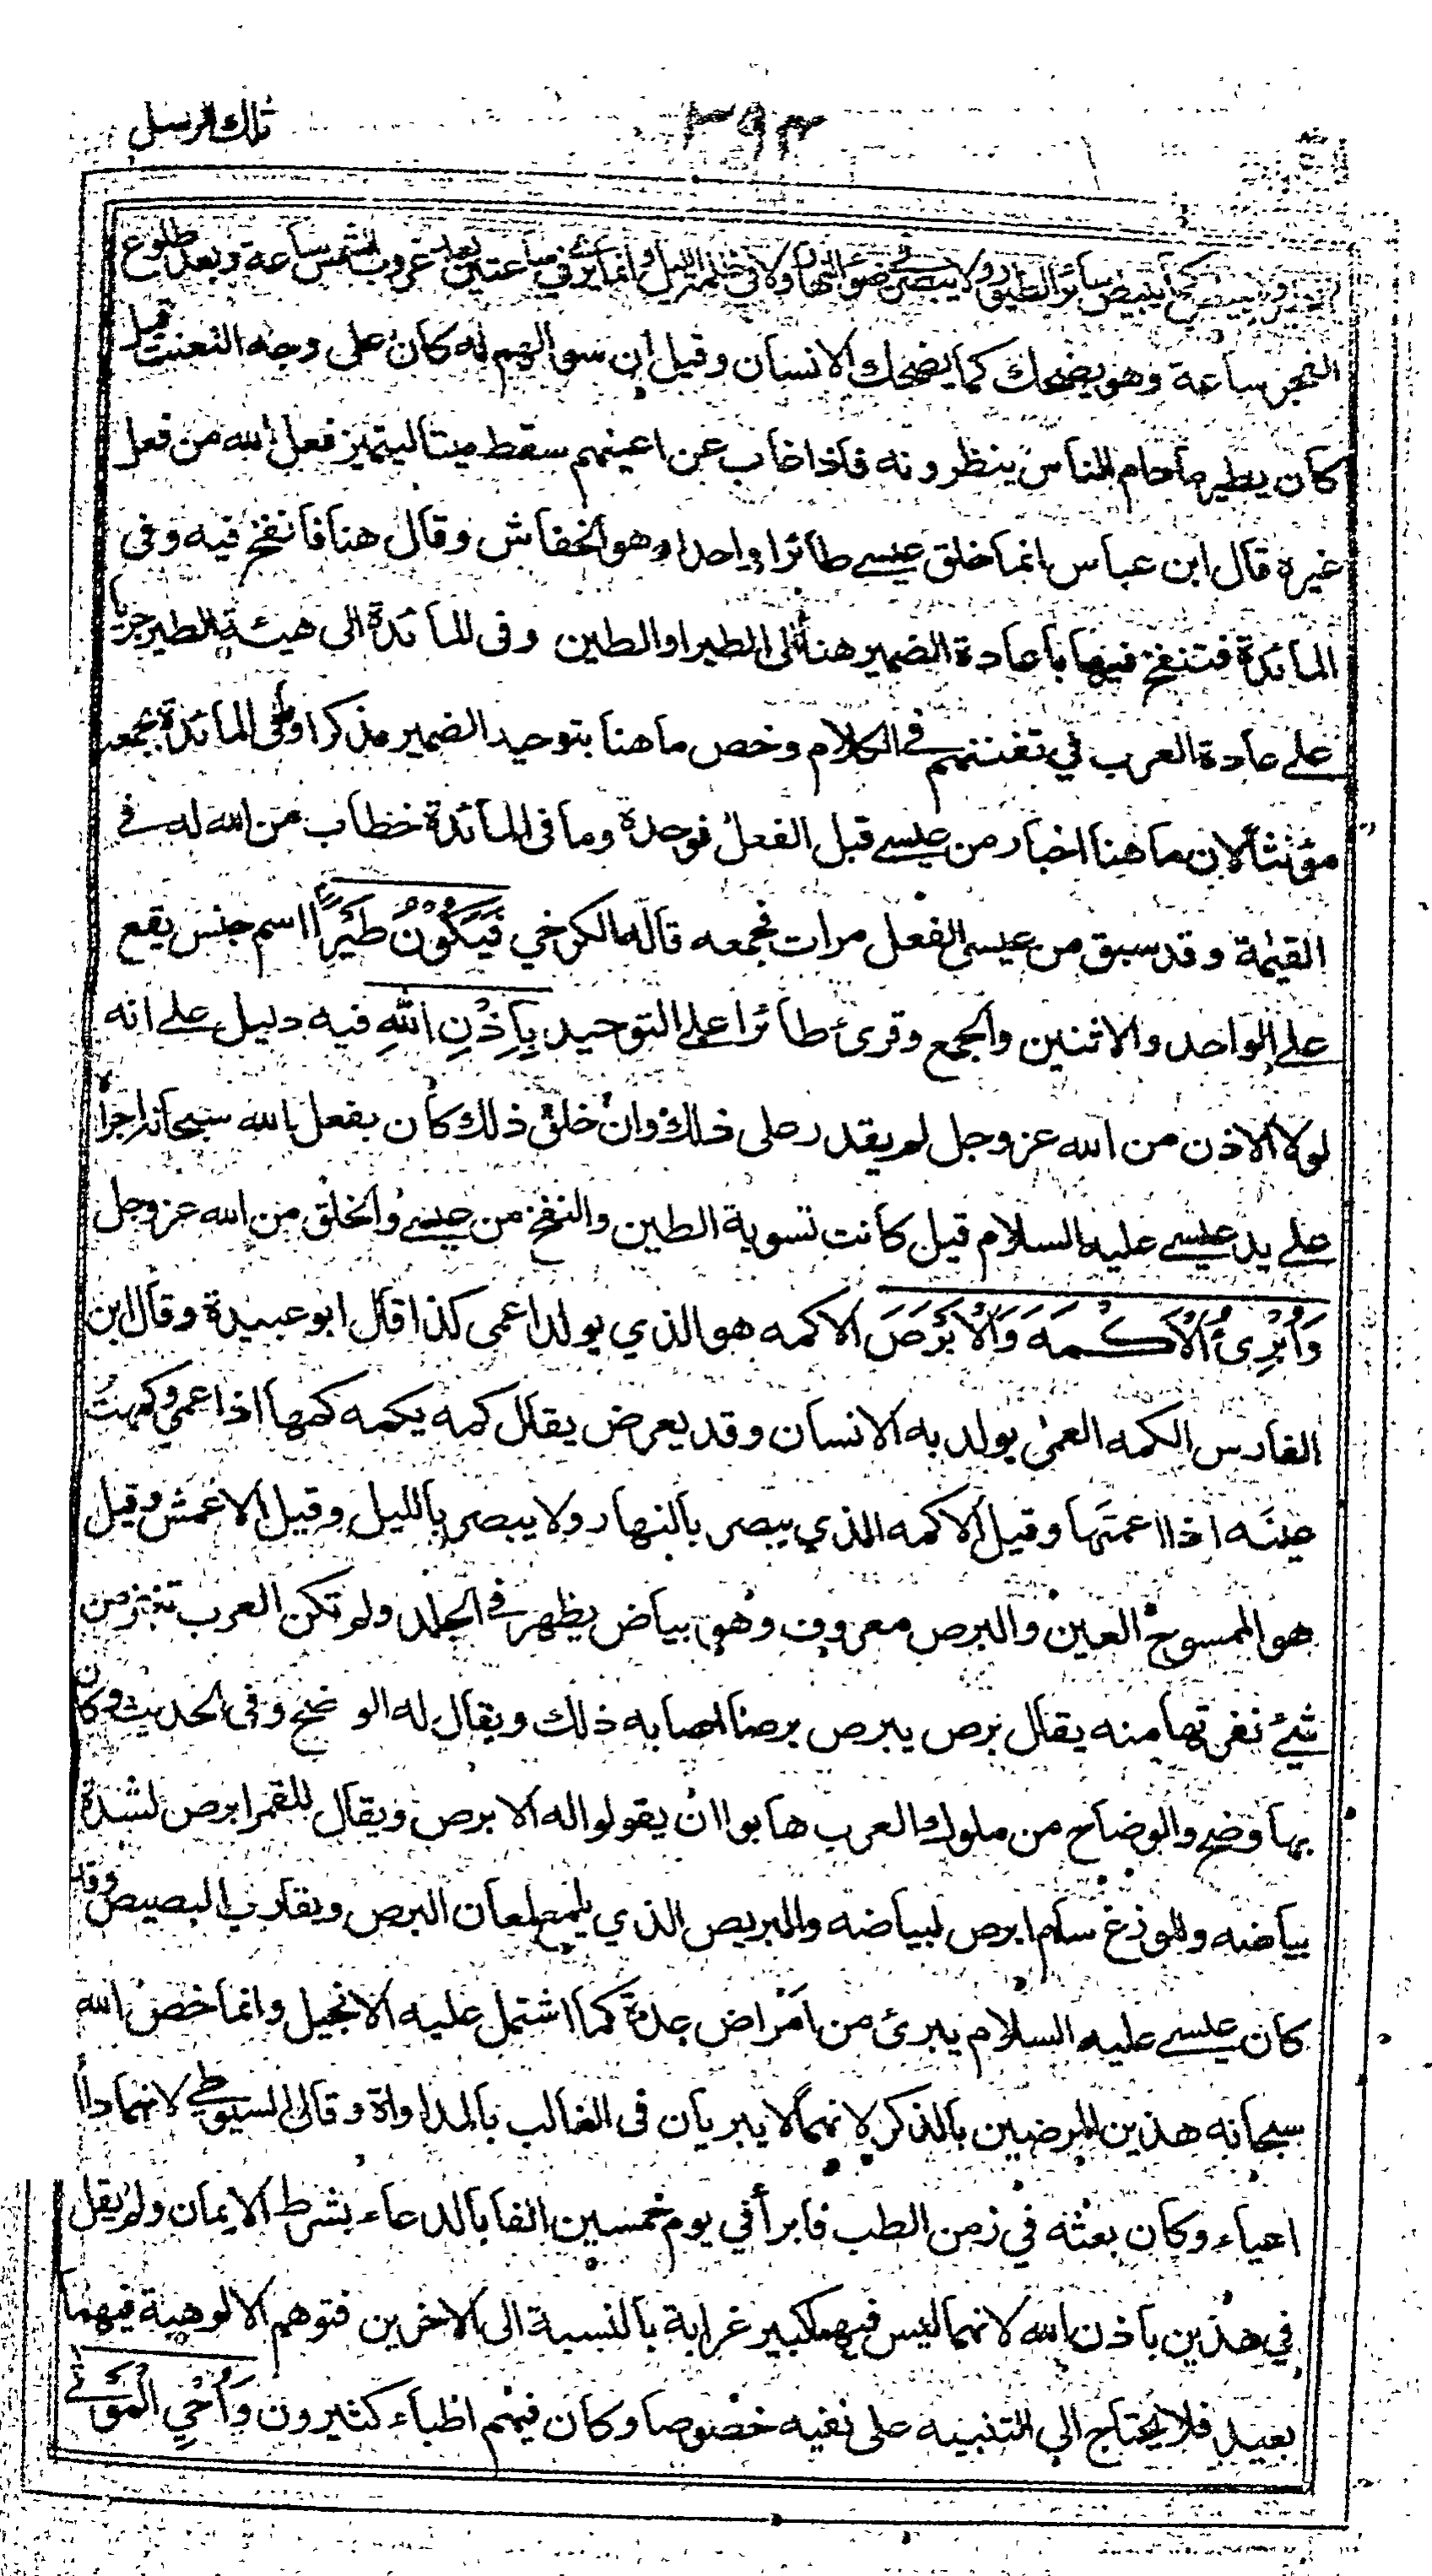 تلك الرسل
٣٩٣
ولا يبيض كما يبيض سائر الطيور ولا يبصر في ضوء النهار ولا في ظلمة الليل وانما يرى في ساعتين بعد غروب الشمس ساعة وبعد طلوع
الفجر ساعة وهو يضحك كما يضحك الانسان وقيل ان سوالهم له كان على وجه التعنت قيل
كان يطير ما دام الناس ينظرونه فاذا غاب عن اعينهم سقط ميتا ليتميز فعل الله من فعل
غيره قال ابن عباس انما خلق عيسى طائرا واحدا وهو الخفاش وقال هنا فانفخ فيه وفي
المائدة فتنفخ فيها باعادة الضمير هنا الى الطير او الطين وفى المائدة الى هيئة الطير جريا
على عادة العرب في تفننهم في الكلام وخص ما هنا بتوحيد الضمير مذكرا وما فى المائدة بجمعه
مؤنثا لان ما هنا اخبار من عيسى قبل الفعل فوحده وما فى المائدة خطاب من الله له في
القيمة وقد سبق من عيسى الفعل مرات فجمعه قاله الكرخي فَيَكُوْنُ طَيْرًا اسم جنس يقع
على الواحد والاثنين والجمع وقرئ طائرا على التوحيد بِاِذْنِ اللّٰهِ فيه دليل على انه
لولا الاذن من الله عز وجل لم يقدر على ذلك وان خلق ذلك كان بفعل الله سبحانه اجراه
على يد عيسى عليه السلام قيل كانت تسوية الطين والنفخ من عيسى والخلق من الله عز وجل
وَاُبْرِئُ الْاَكْمَهَ وَالْاَبْرَصَ الاكمه هو الذي يولد اعمى كذا قال ابو عبيدة وقال ابن
الفارس الكمه العمى يولد به الانسان وقد يعرض يقال كمه يكمه كمها اذا عمي وكمهت
عينه اذا اعميتها وقيل الاكمه الذي يبصر بالنهار ولا يبصر بالليل وقيل الاعمش وقيل
هو الممسوح العين والبرص معروف وهو بياض يظهر في الجلد ولم تكن العرب تنفر من
شئ نفرتها منه يقال برص يبرص برصا اصابه ذلك ويقال له الوضح وفى الحديث وكان
بها وضح والوضاح من ملوك العرب هابوا ان يقولوا له الابرص ويقال للقمر ابرص لشدة
بياضه وللوزغ سام ابرص لبياضه والبريص الذي يلمع لمعان البرص ويقارب البصيص وقد
كان عيسى عليه السلام يبرئ من امراض عدة كما اشتمل عليه الانجيل وانما خص الله
سبحانه هذين المرضين بالذكر لانهما لا يبريان فى الغالب بالمداواة وقال السيوطي لانهما داآ
اعياء وكان بعثه في زمن الطب فابرأ في يوم خمسين الفا بالدعاء بشرط الايمان ولم يقل
في هذين باذن الله لانهما ليس فيهما كبير غرابة بالنسبة الى الاخرين فتوهم الالوهية فيهما
بعيد فلا يحتاج الى التنبيه على نفيه خصوصا وكان فيهم اطباء كثيرون وَاُحْيِ الْمَوْتٰى